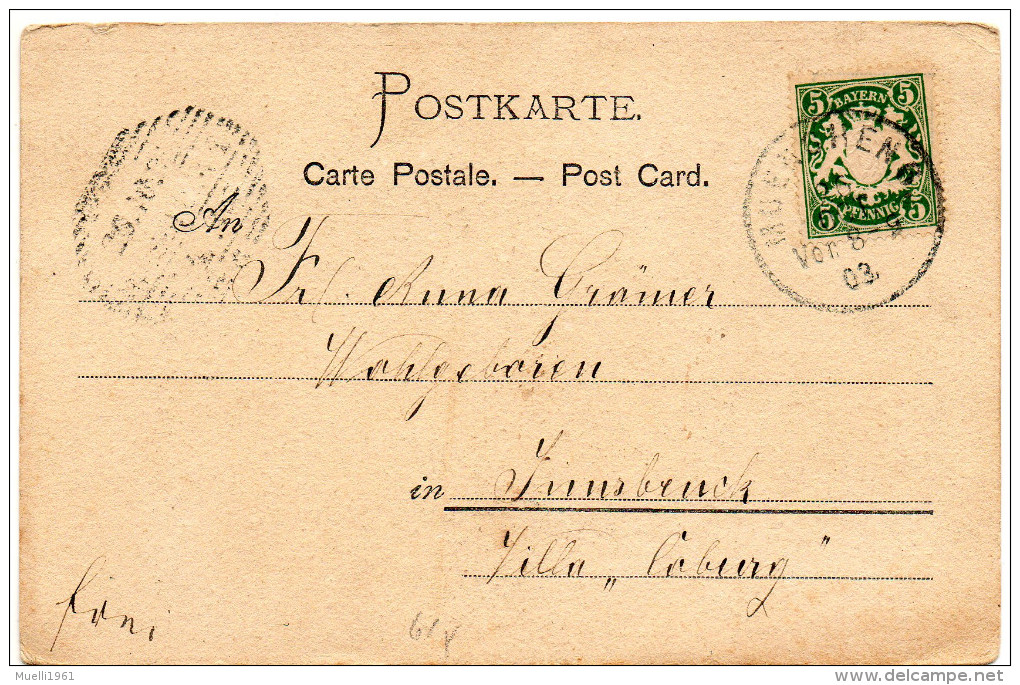 POSTKARTE.
Carte Postale. — Post Card.
5 BAYERN 5
5 PFENNIG 5
MUENCHEN
Vor 8-9
03.
An
Frl. Anna Grämer
Wohlgeboren
in Innsbruck
Villa „Coburg"
frei
Muelli1961
delcampe.net